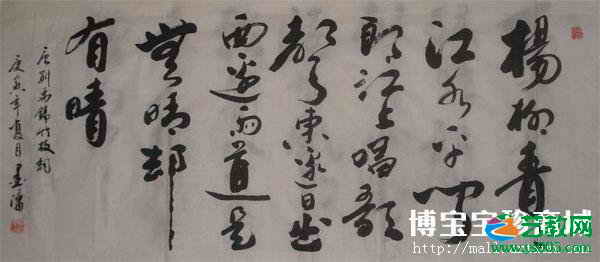 楊柳青
江水平聞
郎江上唱歌
聲東邊日出
西邊雨道是
無晴却
有晴
唐劉禹錫竹枝詞
庚寅年夏月
博宝
艺教网